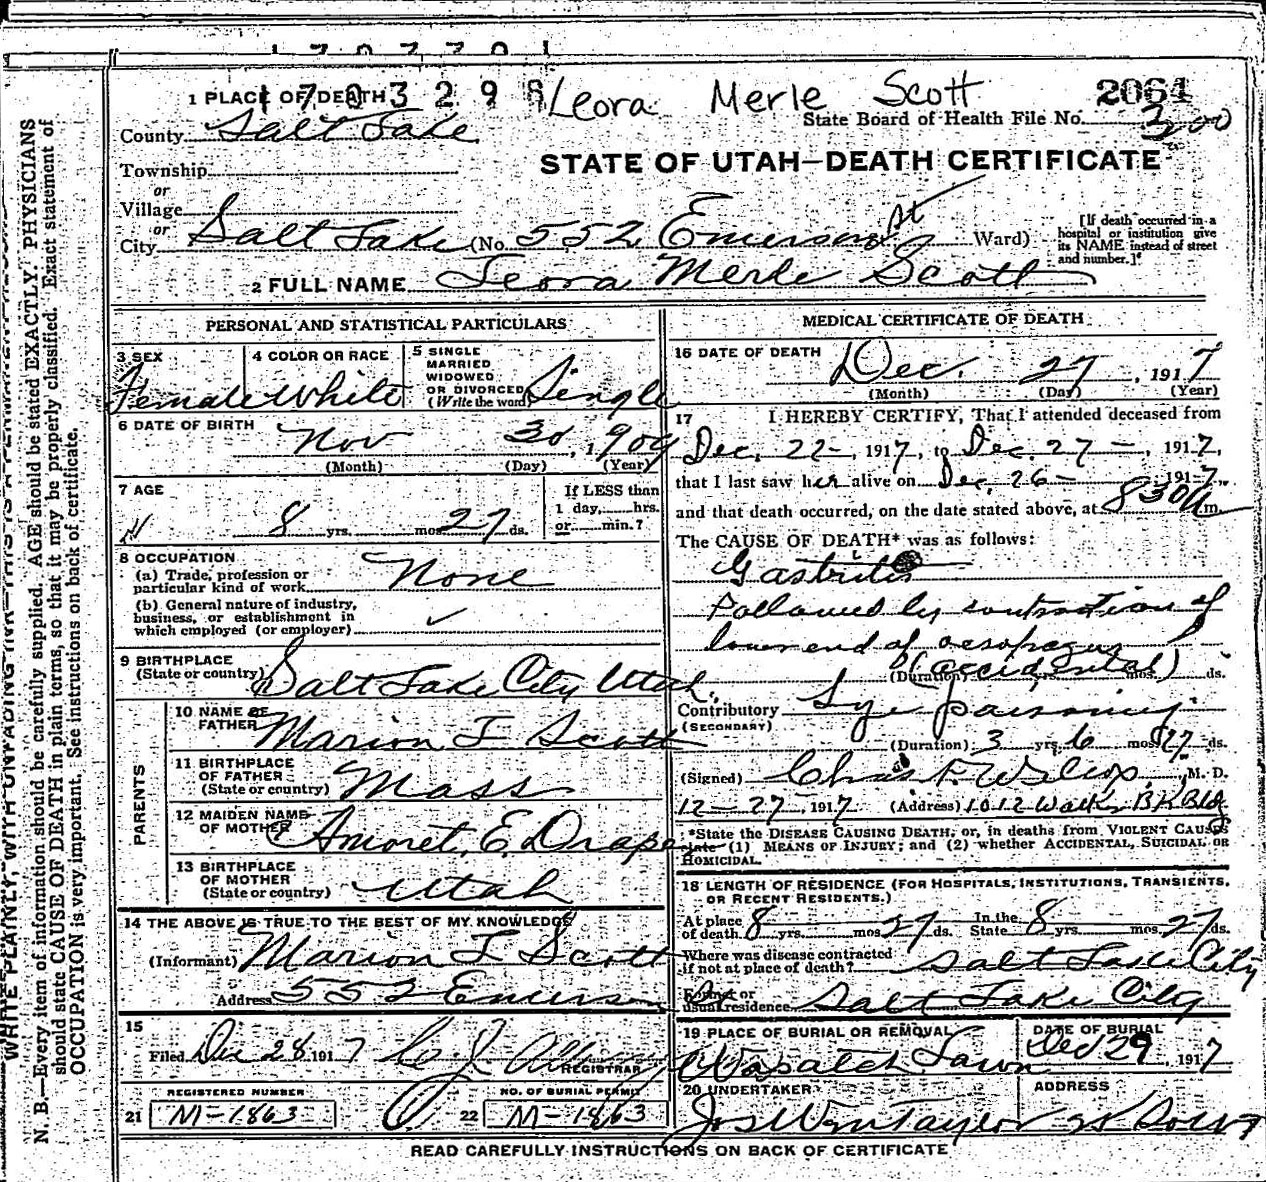 1 PLACE OF DEATH 1703298 Leora Merle Scott 2064
State Board of Health File No. 300
County Salt Lake
STATE OF UTAH—DEATH CERTIFICATE
Township
or
Village
or
City Salt Lake (No. 552 Emerson St Ward)
[If death occurred in a hospital or institution give its NAME instead of street and number.]
2 FULL NAME Leora Merle Scott
PERSONAL AND STATISTICAL PARTICULARS
3 SEX Female
4 COLOR OR RACE White
5 SINGLE MARRIED WIDOWED OR DIVORCED (Write the word) Single
6 DATE OF BIRTH Nov 30, 1909
(Month) (Day) (Year)
7 AGE 8 yrs. mos. 27 ds.
If LESS than 1 day, hrs. or min.?
8 OCCUPATION
(a) Trade, profession or particular kind of work None
(b) General nature of industry, business, or establishment in which employed (or employer)
9 BIRTHPLACE (State or country) Salt Lake City Utah
PARENTS
10 NAME OF FATHER Marion F Scott
11 BIRTHPLACE OF FATHER (State or country) Mass
12 MAIDEN NAME OF MOTHER Amoret E. Draper
13 BIRTHPLACE OF MOTHER (State or country) Utah
14 THE ABOVE IS TRUE TO THE BEST OF MY KNOWLEDGE
(Informant) Marion F Scott
Address 552 Emerson
15
Filed Dec 28 1917
REGISTRAR
REGISTERED NUMBER
21 M-1863
NO. OF BURIAL PERMIT
22 M-1863
MEDICAL CERTIFICATE OF DEATH
16 DATE OF DEATH Dec. 27, 1917
(Month) (Day) (Year)
17 I HEREBY CERTIFY, That I attended deceased from
Dec. 22-, 1917, to Dec. 27-, 1917,
that I last saw her alive on Dec. 26- 1917,
and that death occurred, on the date stated above, at 830 a m.
The CAUSE OF DEATH* was as follows:
Gastritis
Followed by contraction of
lower end of oesophagus
(accidental)
(Duration) yrs. mos. ds.
Contributory (SECONDARY) Lye poisoning
(Duration) 3 yrs. 6 mos. 27 ds.
(Signed) Chas F. Wilcox, M. D.
12-27, 1917 (Address) 1012 Walker Bk Bldg
*State the DISEASE CAUSING DEATH, or, in deaths from VIOLENT CAUSES
state (1) MEANS OF INJURY; and (2) whether ACCIDENTAL, SUICIDAL OR
HOMICIDAL.
18 LENGTH OF RESIDENCE (FOR HOSPITALS, INSTITUTIONS, TRANSIENTS,
OR RECENT RESIDENTS.)
At place of death 8 yrs. mos. 27 ds. In the State 8 yrs. mos. 27 ds.
Where was disease contracted if not at place of death? Salt Lake City
Former or usual residence Salt Lake City
19 PLACE OF BURIAL OR REMOVAL Wasatch Lawn
DATE OF BURIAL Dec 29, 1917
20 UNDERTAKER Jos Wm Taylor
ADDRESS
READ CAREFULLY INSTRUCTIONS ON BACK OF CERTIFICATE
N. B.—Every item of information should be carefully supplied. AGE should be stated EXACTLY. PHYSICIANS
should state CAUSE OF DEATH in plain terms, so that it may be properly classified. Exact statement of
OCCUPATION is very important. See instructions on back of certificate.
WRITE PLAINLY, WITH UNFADING INK—THIS IS A PERMANENT